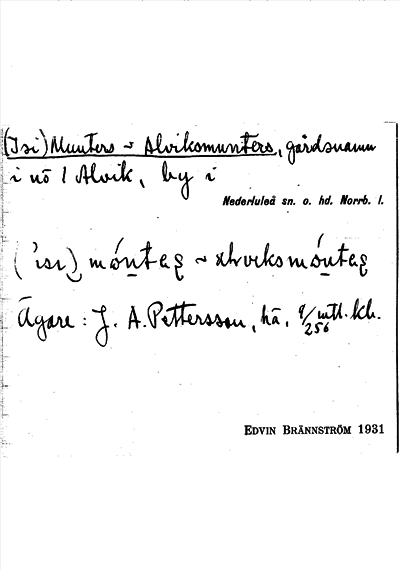 (Isi) Munters ~ Alviksmunters, gårdsnamn
i nö 1 Alvik, by i
Nederluleå sn. o. hd. Norrb. l.
Ägare: J. A. Pettersson, hä, 9/256 mtl. kh.
EDVIN BRÄNNSTRÖM 1931